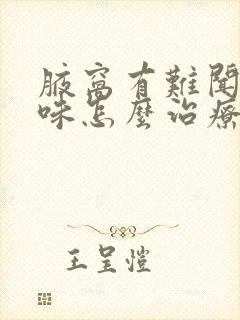 腋窩有難聞
味怎麼治療
王呈愷